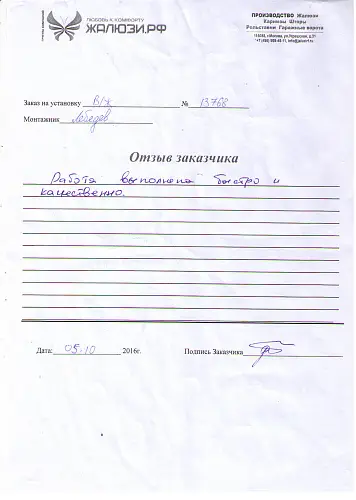 ЛЮБОВЬ К КОМФОРТУ
ЖАЛЮЗИ.РФ
ПРОИЗВОДСТВО Жалюзи
Карнизы Шторы
Рольставни Гаражные ворота
Заказ на установку В/ж № 13768
Монтажник Лебедев
Отзыв заказчика
Работа выполнена быстро и
качественно.
Дата: 05.10 2016г. Подпись Заказчика